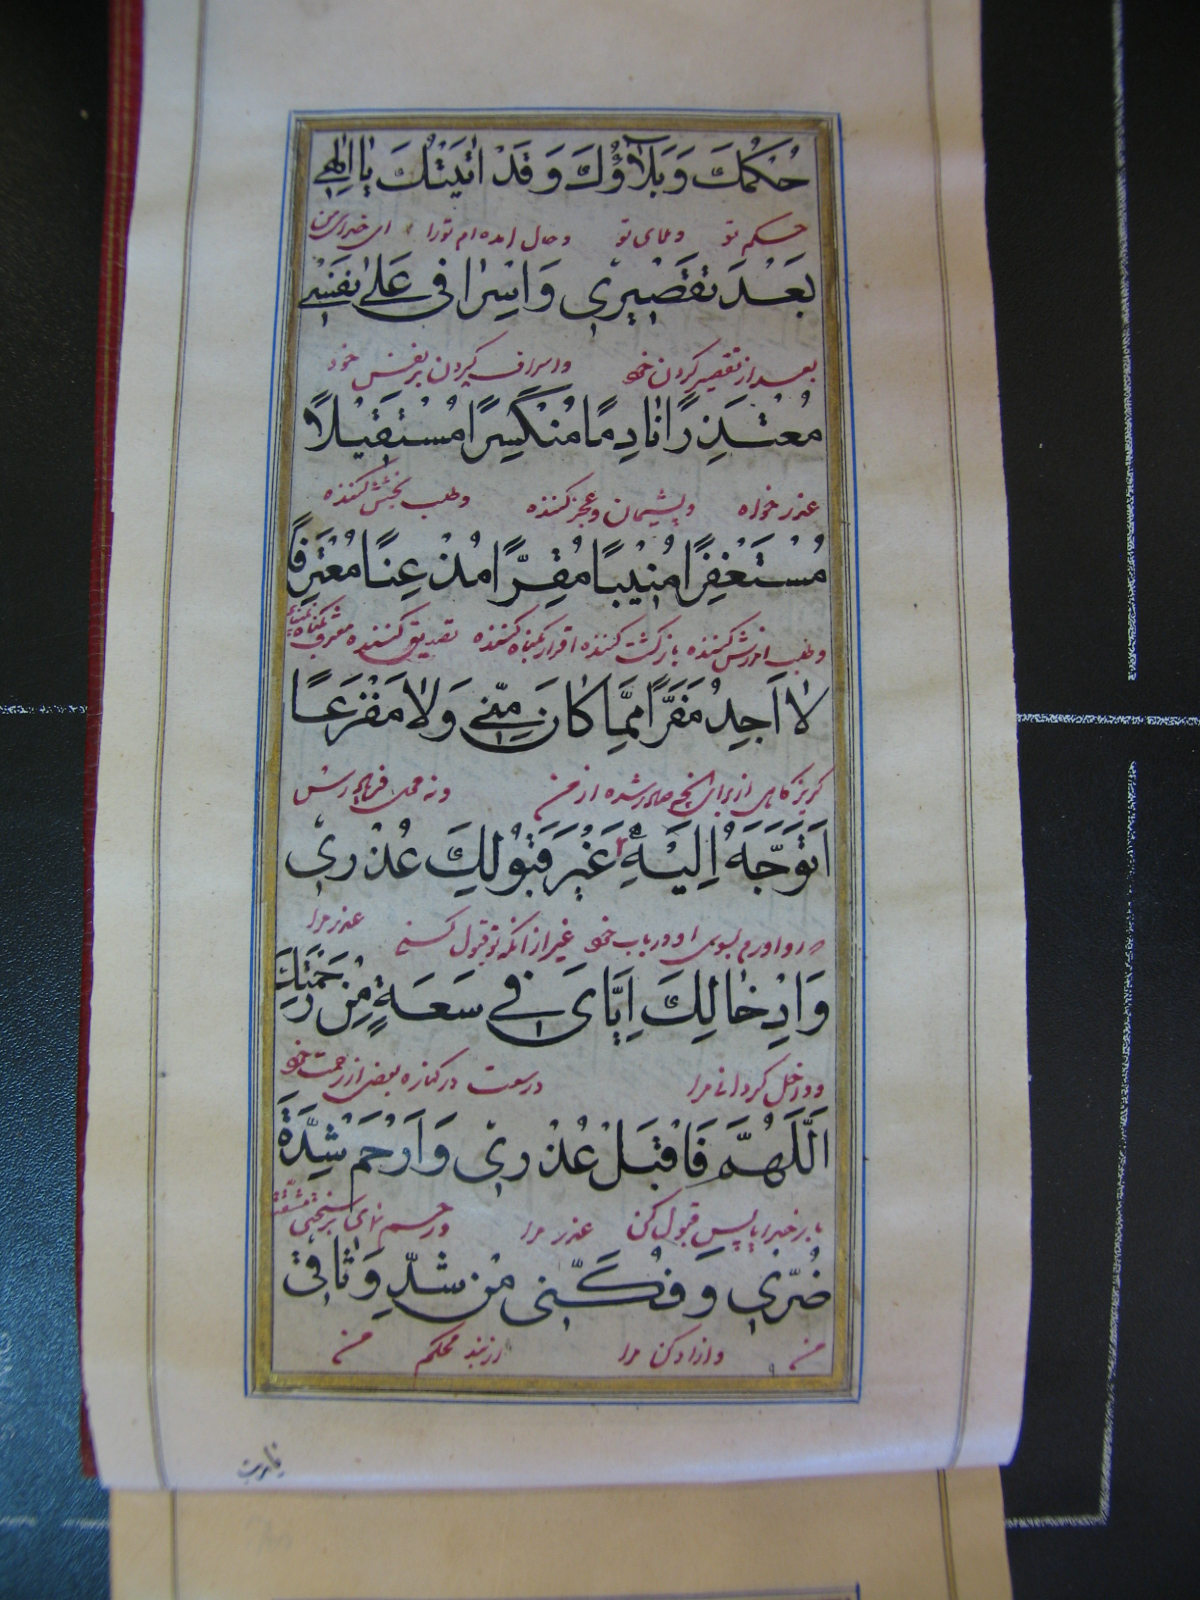 حُكْمُكَ وَبَلَاؤُكَ وَقَدْ اَتَيْتُكَ يَا اِلٰهِي
حکم تو وبلای تو وحال آمده ام تو را ای خدای من
بَعْدَ تَقْصِيرِي وَاِسْرَافِي عَلٰى نَفْسِي
بعد از تقصیر کردن خود واسراف کردن بر نفس خود
مُعْتَذِرًا نَادِمًا مُنْكَسِرًا مُسْتَقِيلًا
عذر خواه وپشیمان وعجز کننده وطلب بخشش کننده
مُسْتَغْفِرًا مُنِيبًا مُقِرًّا مُذْعِنًا مُعْتَرِفًا
وطلب آمرزش کننده بازگشت کننده اقرار بگناه کننده تصدیق کننده معترف بگناه
لَا اَجِدُ مَفَرًّا مِمَّا كَانَ مِنِّي وَلَا مَفْزَعًا
گریزگاهی از برای آنچه صادر شده از من ونه محل فریادرس
اَتَوَجَّهُ اِلَيْهِ غَيْرَ قَبُولِكَ عُذْرِي
رو آورم بسوی او در باب خود غیر از آنکه تو قبول کنی عذر مرا
وَاِدْخَالِكَ اِيَّايَ فِي سَعَةٍ مِنْ رَحْمَتِكَ
وداخل گردانی مرا در سعت در کناره بعض از رحمت خود
اَللّٰهُمَّ فَاقْبَلْ عُذْرِي وَارْحَمْ شِدَّةَ
بار خدایا پس قبول کن عذر مرا ورحم نمای بر سختی
ضُرِّي وَفُكَّنِي مِنْ شَدِّ وَثَاقِي
من وآزاد کن مرا از بند محکم من
یا رب